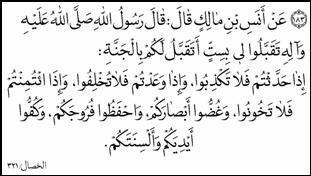 ١٨٣ عَنْ أَنَسِ بْنِ مَالِكٍ قَالَ: قَالَ رَسُولُ اللهِ صَلَّى اللهُ عَلَيْهِ
وَآلِهِ تَقَبَّلُوا لِي بِسِتٍّ أَتَقَبَّلْ لَكُمْ بِالْجَنَّةِ:
إِذَا حَدَّثْتُمْ فَلَا تَكْذِبُوا، وَإِذَا وَعَدْتُمْ فَلَا تُخْلِفُوا، وَإِذَا ائْتُمِنْتُمْ
فَلَا تَخُونُوا، وَغُضُّوا أَبْصَارَكُمْ، وَاحْفَظُوا فُرُوجَكُمْ، وَكُفُّوا
أَيْدِيَكُمْ وَأَلْسِنَتَكُمْ.
الخصال: ٣٢١